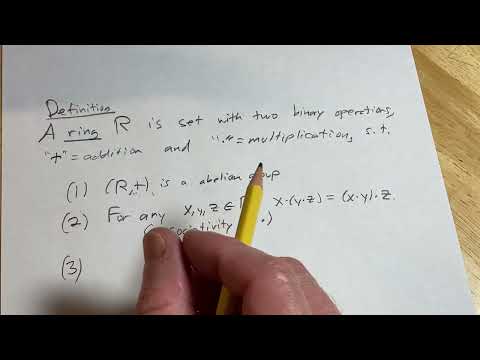 Definition
A ring R is set with two binary operations,
"+"=addition and "·"=multiplication, s.t.
(1) (R,+) is a abelian group
(2) For any x,y,z ∈ x·(y·z) = (x·y)·z.
·)
(3)